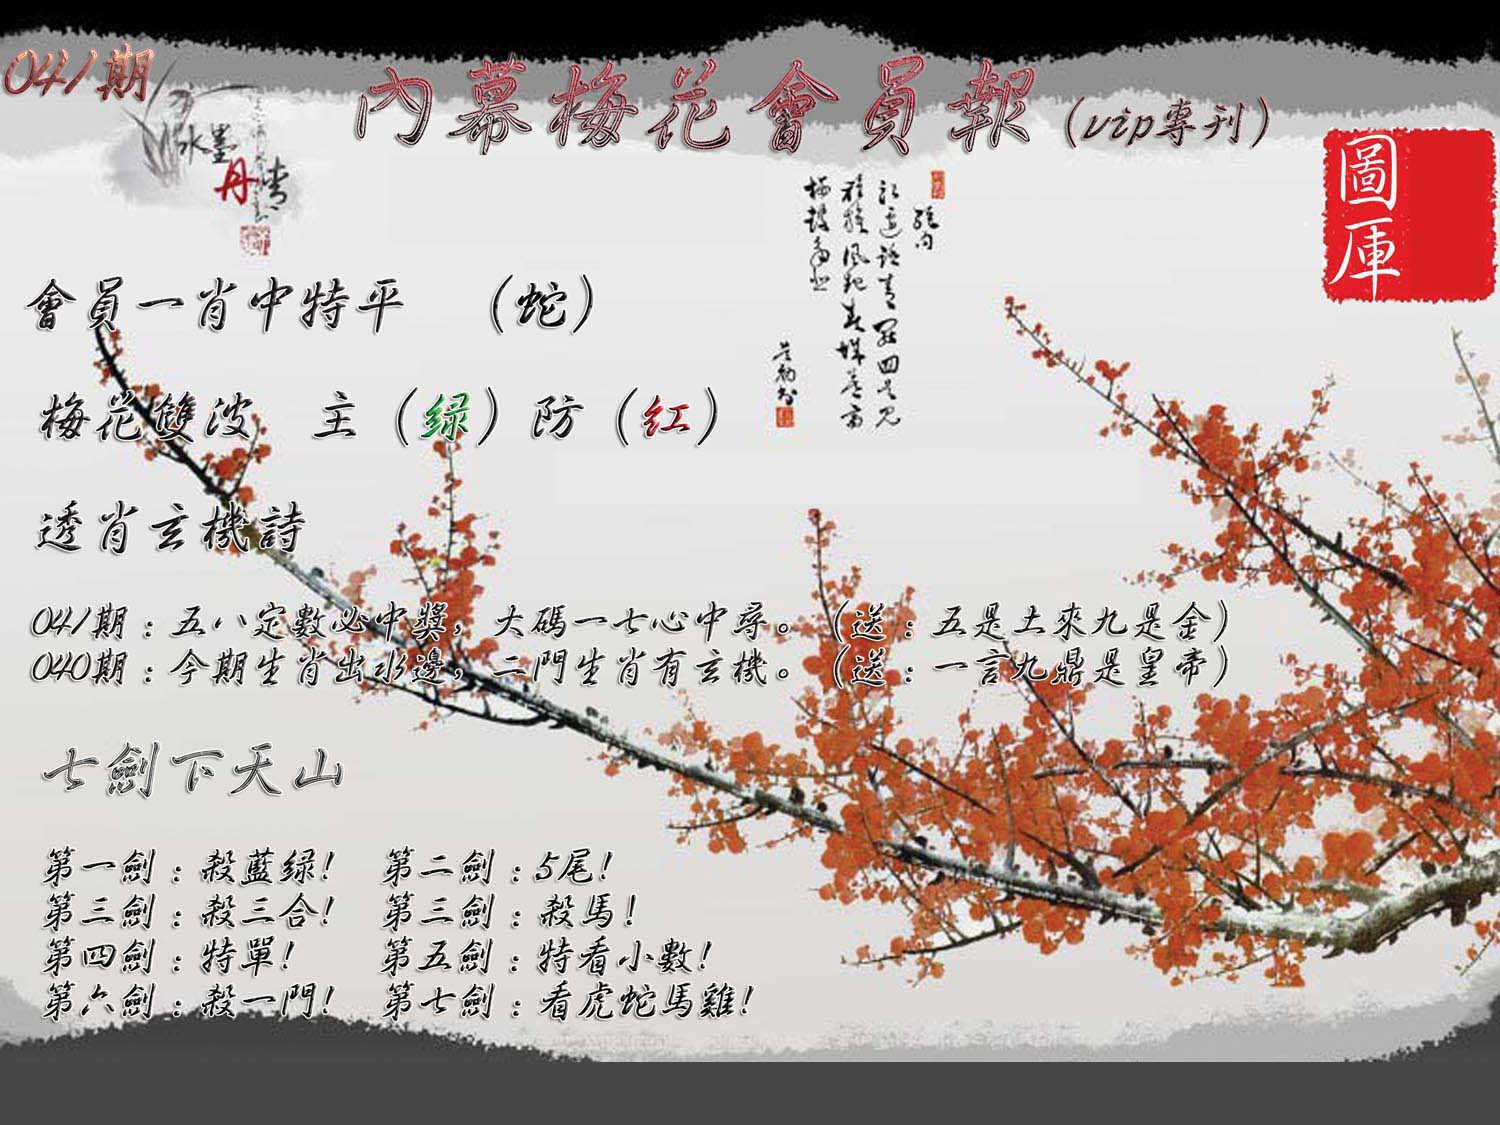 041期
內幕梅花會員報(vip專刊)
水墨
丹青
圖庫
會員一肖中特平 (蛇)
梅花雙波 主(绿)防(红)
透肖玄機詩
041期:五八定數必中獎,大碼一七心中尋。(送:五是土來九是金)
040期:今期生肖出水邊,二門生肖有玄機。(送:一言九鼎是皇帝)
七劍下天山
第一劍:殺藍绿! 第二劍:5尾!
第三劍:殺三合! 第三劍:殺馬!
第四劍:特單! 第五劍:特看小數!
第六劍:殺一門! 第七劍:看虎蛇馬雞!